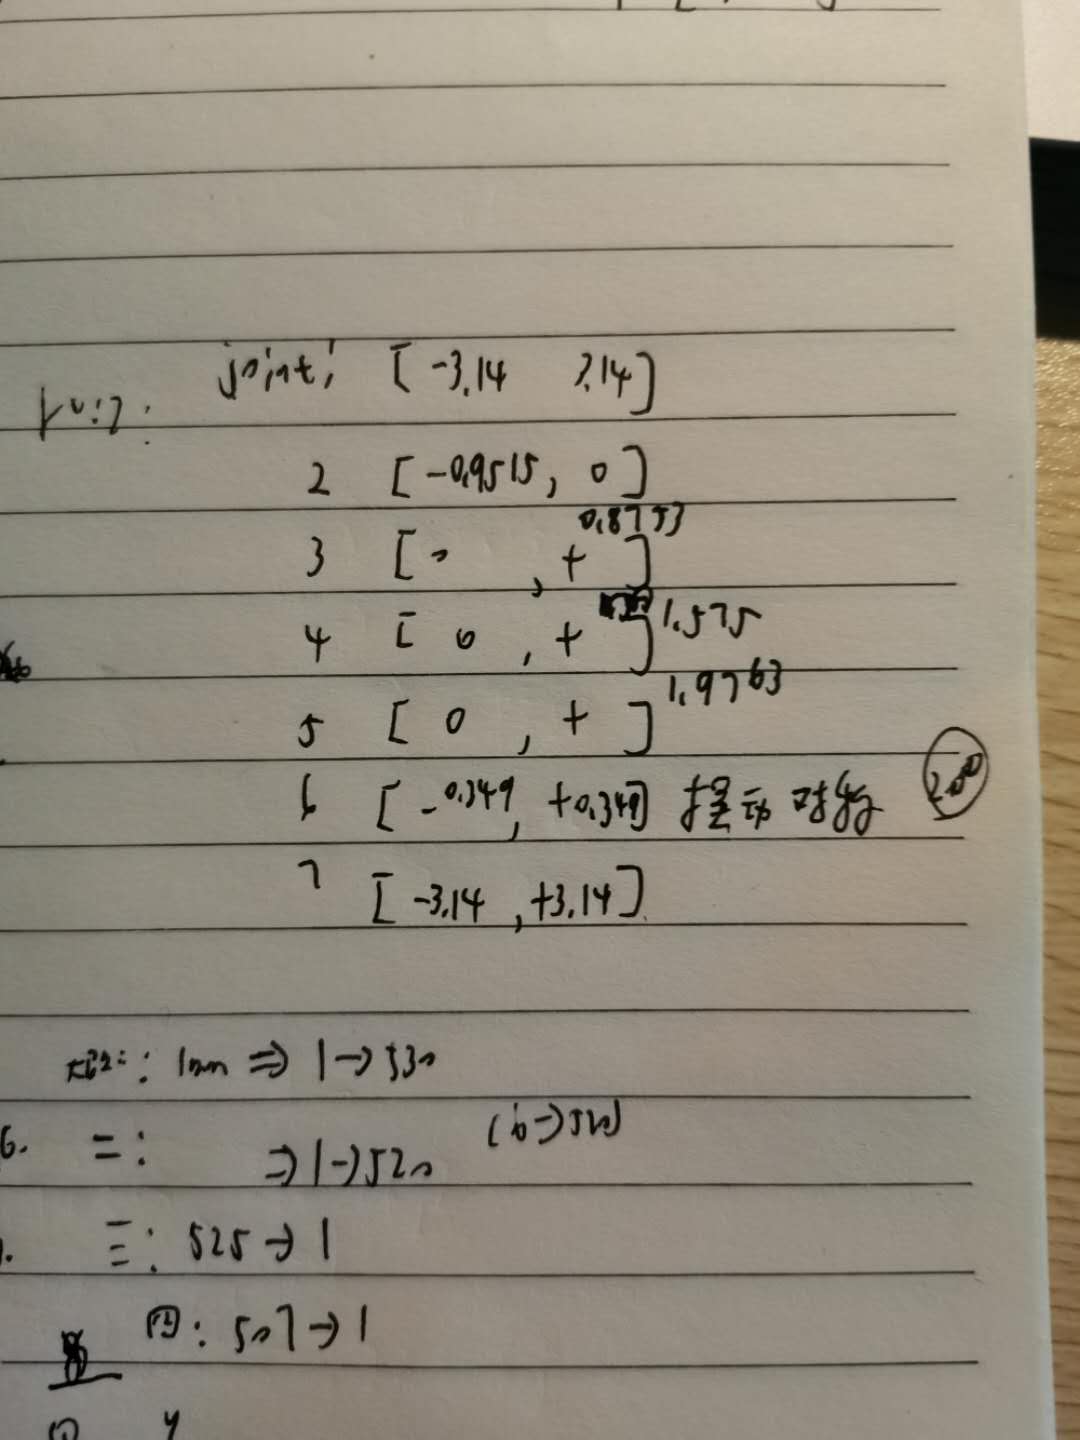 joint1 [-3.14 3.14]
2 [-0.9515, 0]
3 [0, +0.8753]
4 [0, +] 1.575
5 [0, +] 1.9763
6 [-0.349, +0.349] 对 200
7 [-3.14, +3.14]
: 1mm ⇒ 1→530
6. 二: ⇒1→520 (6←520)
三: 525→1
四: 507→1
① y